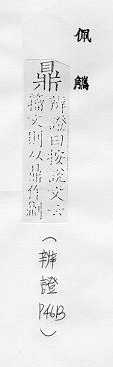 佩觿
鼎
辨證曰按說文云
籀文則以鼎作劕
（辨證
P46B）